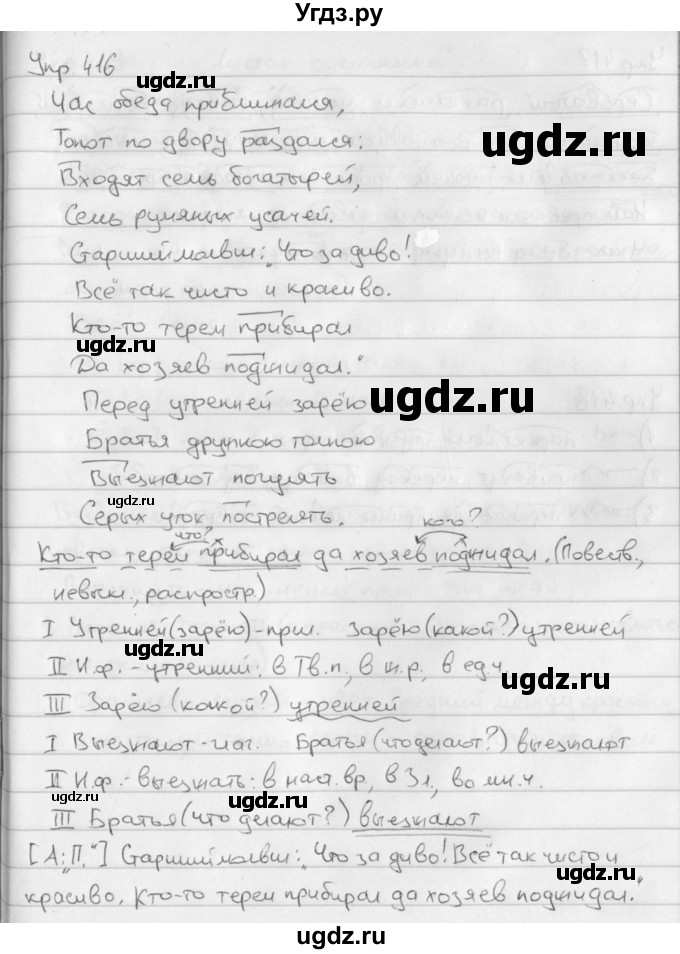 Угдз.ру
Упр. 416
Час обеда приближался,
Топот по двору раздался:
Входят семь богатырей,
Семь румяных усачей.
Старший молвил: „Что за диво!
Всё так чисто и красиво.
Кто-то терем прибирал
Да хозяев поджидал."
Перед утренней зарёю
Братья дружною толпою
Выезжают погулять
Серых уток пострелять.
что? кого?
Кто-то терем прибирал да хозяев поджидал. (Повеств.,
невоскл., распростр.)
I Утренней (зарёю) - прил. Зарёю (какой?) утренней
II И.ф. - утренний; в Тв.п., в ж.р., в ед.ч.
III Зарёю (какой?) утренней
I Выезжают - гл. Братья (что делают?) выезжают
II Н.ф. - выезжать; в наст.вр, в 3л, во мн.ч.
III Братья (что делают?) выезжают
[А: „П."] Старший молвил: „Что за диво! Всё так чисто и
красиво. Кто-то терем прибирал да хозяев поджидал."
ugdz.ru
ugdz.ru
ugdz.ru
ugdz.ru
ugdz.ru
ugdz.ru
ugdz.ru
ugdz.ru
ugdz.ru
ugdz.ru
ugdz.ru
ugdz.ru
ugdz.ru